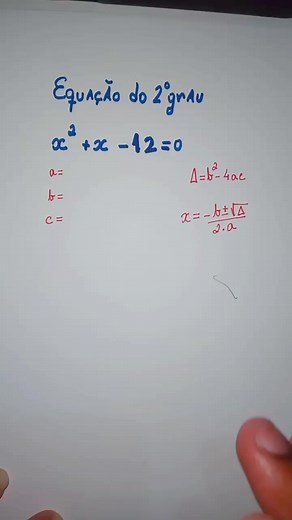 Equação do 2º grau
x² + x - 12 = 0
a=
b=
c=
Δ = b² - 4ac
x = -b ± √Δ
2.a